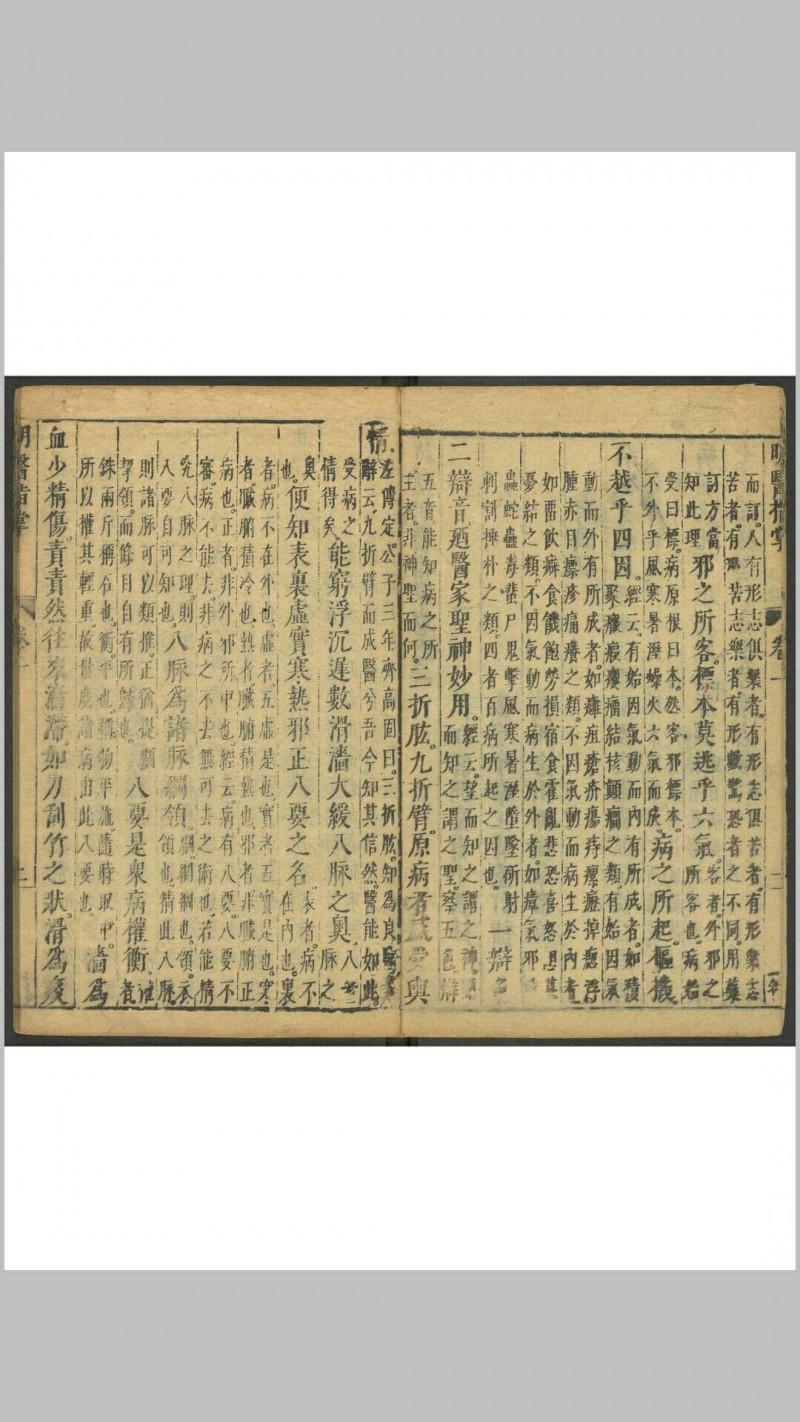 明醫指掌 卷一
而訂。人有形志俱樂者。有形志俱苦者。有形樂志
苦者。有形苦志樂者。有形數驚恐者之不同。用藥
訂方當
知此理
邪之所客。標本莫逃乎六氣。
客者。外邪之
所客也。病若
受曰標。病原根曰本。然客邪標本。
不外乎風寒暑溼燥火六氣而戾
病之所起。樞機
不越乎四因。
經云。有始因氣動而內有所成者。如積
聚癥瘕癭瘤結核顛癇之類。有始因氣
動而外有所成者。如癰疽瘡疥瘍痔癮癧掉瘛浮
腫赤目熛疹痛癢之類。不因氣動而病生於內者。
如畱飲癖食饑飽勞損宿食霍亂悲恐喜怒想其
憂結之類。不因氣動而病生於外者。如瘴氣邪
蟲蛇蠱毒蜚尸鬼擊風寒暑溼墮墜斫射
刺割捶朴之類。四者百病所起之因也。
一辯
二辯音廼醫家聖神妙用。
經云。望而知之。謂之神
而知之謂之聖。察五色辯
五音能知病之所
主者。非神聖而何。
三折肱。九折臂。原病者 與
情。
左傳定公子三年齊高固曰。三折肱。知為良醫
辭云。九折臂而成醫兮。吾今知其信然。醫能如此
受病之
情得矣。
能窮浮沉遲數滑濇大緩八脉之奧。
八者
脉之
奧
也。
便知表裏虛實寒熱邪正八要之名。
表者。病不
在內也。裏
者。病不在外也。虛者。五虛是也。實者五實是也。寒
者。臟腑積冷也。熱者。臟腑積熱也。邪者非臟腑正
病也。正者。非外邪所中也。經云。病有八要。八要不
審。病不能去。非病之不去無可去之術也。若能精
究八脉之理。則
八要自可知也。
八脉為諸脉綱領。
綱網綱也。領衣
領也。精此八脉
則諸脉可以類推。正猶提綱
挈領。而條目自有所歸也。
八要是衆病權衡。
權者
銖兩斤稱在也。衡平也。稱物平施隨時取中。
所以權其輕重。故世虞諸病由此八要也。
濇為
血少精傷。責責然往來濇滯。如刀刮竹之狀。滑為痰
明醫指掌 卷一